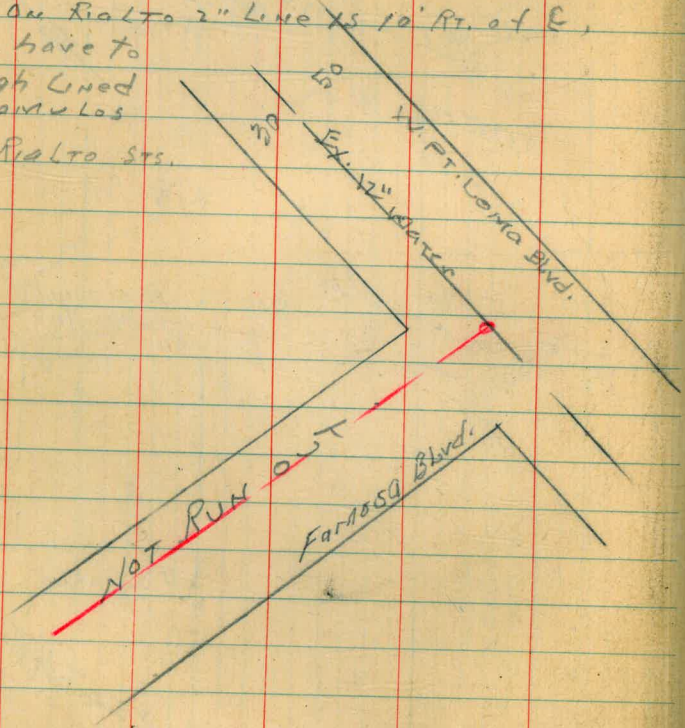 On Rialto 2" Line is 10' Rt. of ℄,
have to
gh Lined
omulos
Rialto Sts.
50
30
W. Pt. Loma Blvd.
Ex. 12" Water
NOT RUN OUT
Famosa Blvd.